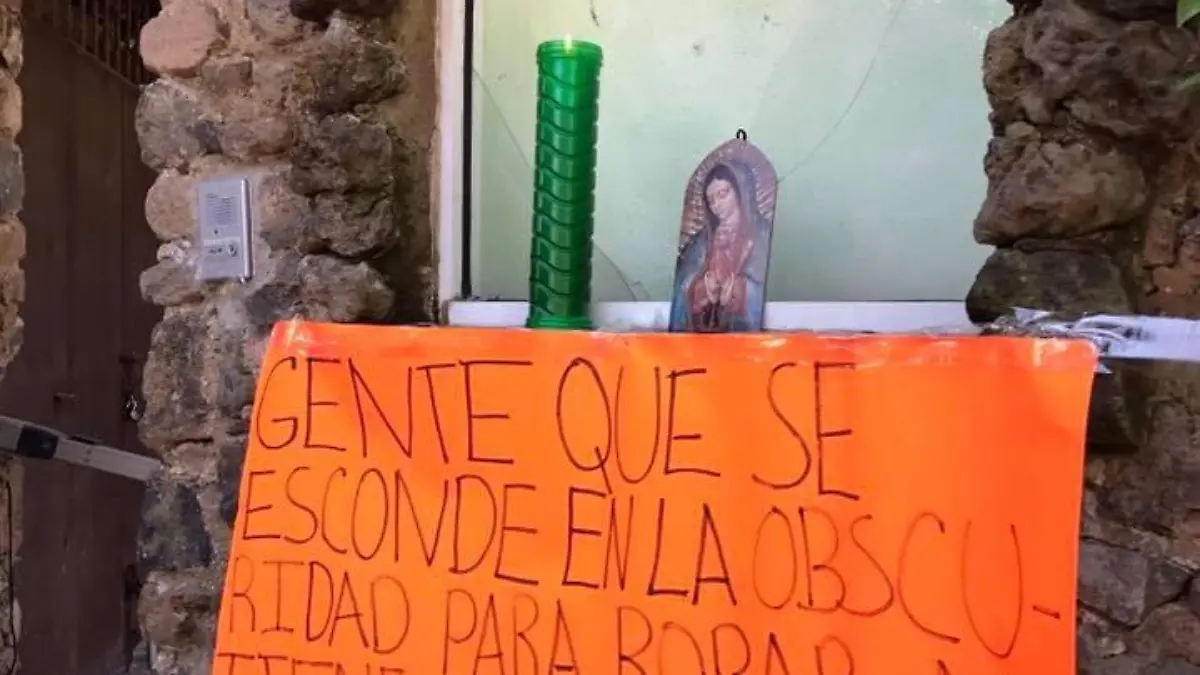 GENTE QUE SE
ESCONDE EN LA OBSCU-
RIDAD PARA ROBAR
TIENE